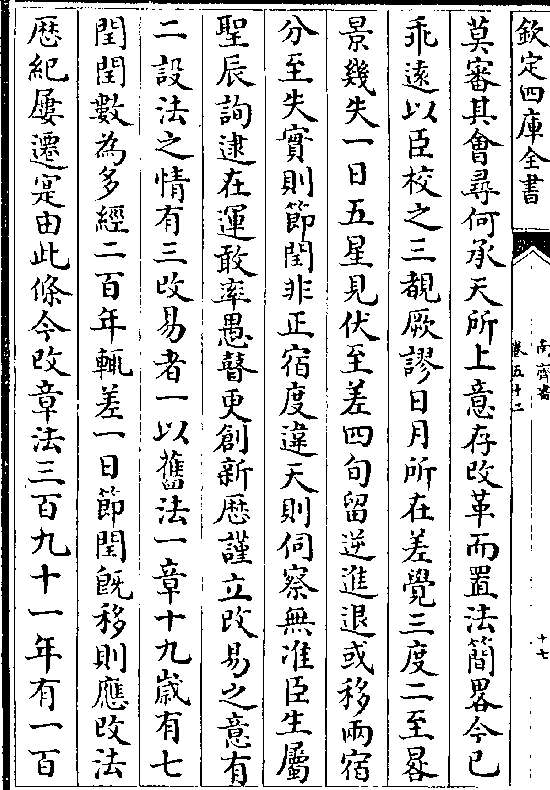 欽定四庫全書
南齊書
卷五十二
十七
莫審其會尋何承天所上意存改革而置法簡畧今已
乖逺以臣校之三覩厥謬日月所在差覺三度二至晷
景幾失一日五星見伏至差四旬留逆進退或移兩宿
分至失實則節閏非正宿度違天則伺察無准臣生屬
聖辰詢逮在運敢率愚瞽更創新歴謹立改易之意有
二設法之情有三改易者一以舊法一章十九歲有七
閏閏數為多經二百年輒差一日節閏既移則應改法
歴紀屢遷寔由此條今改章法三百九十一年有一百